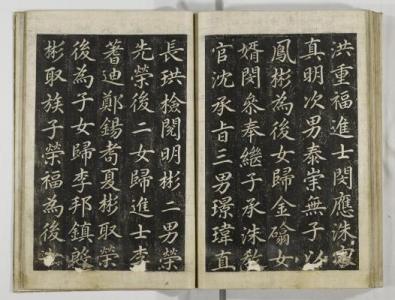 洪重福進士閔應洙
真明次男泰崇無子以
鳳彬為後女歸金䃭女
婿閔衆奉繼子承洙
官沈承旨三男璟瑋直
長珙檢閱明彬二男榮
先榮後二女歸進士李
蓍迪鄭錫耇夏彬取榮
後為子女歸李邦鎮
彬取族子榮福為後